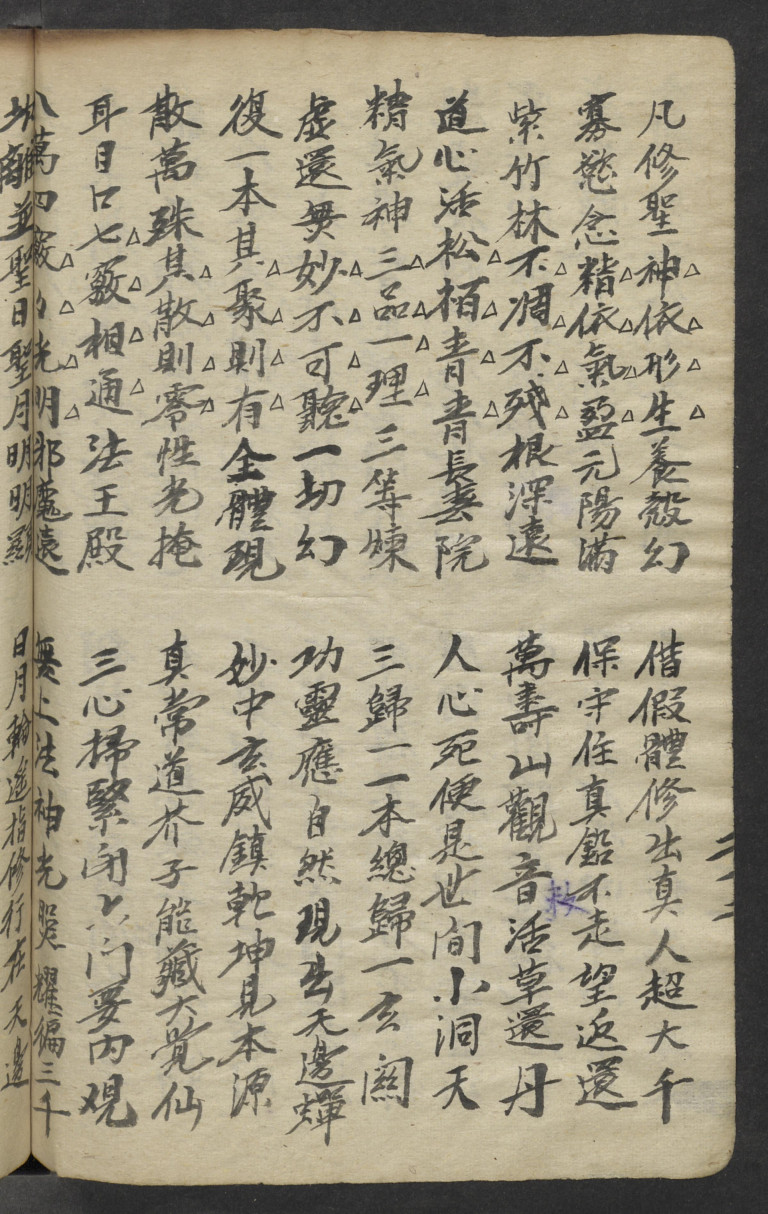 凡修聖神依形生養殼幻　借假體修出真人超大千
寡慾念精依氣盈元陽滿　保守住真鉛不走望返還
紫竹林不凋不殘根深遠　萬壽山觀音活草還丹
救
道心活松栢青青長春院　人心死便是世间小洞天
精氣神三品一理三等煉　三歸一一本總歸一玄関
虛還無妙不可聽一切幻　功靈應自然現出天邊蟬
復一本其聚則有全體現　妙中玄威鎮乾坤見本源
散萬殊其散則零性光掩　真常道芥子能藏大覺仙
耳目口七竅相通法王殿　三心掃緊闭六门要内观
八萬四竅光明邪魔遠　無上法神光照耀编三千
坎離並聖日聖月明明顯　日月輪遙指修行在天邊